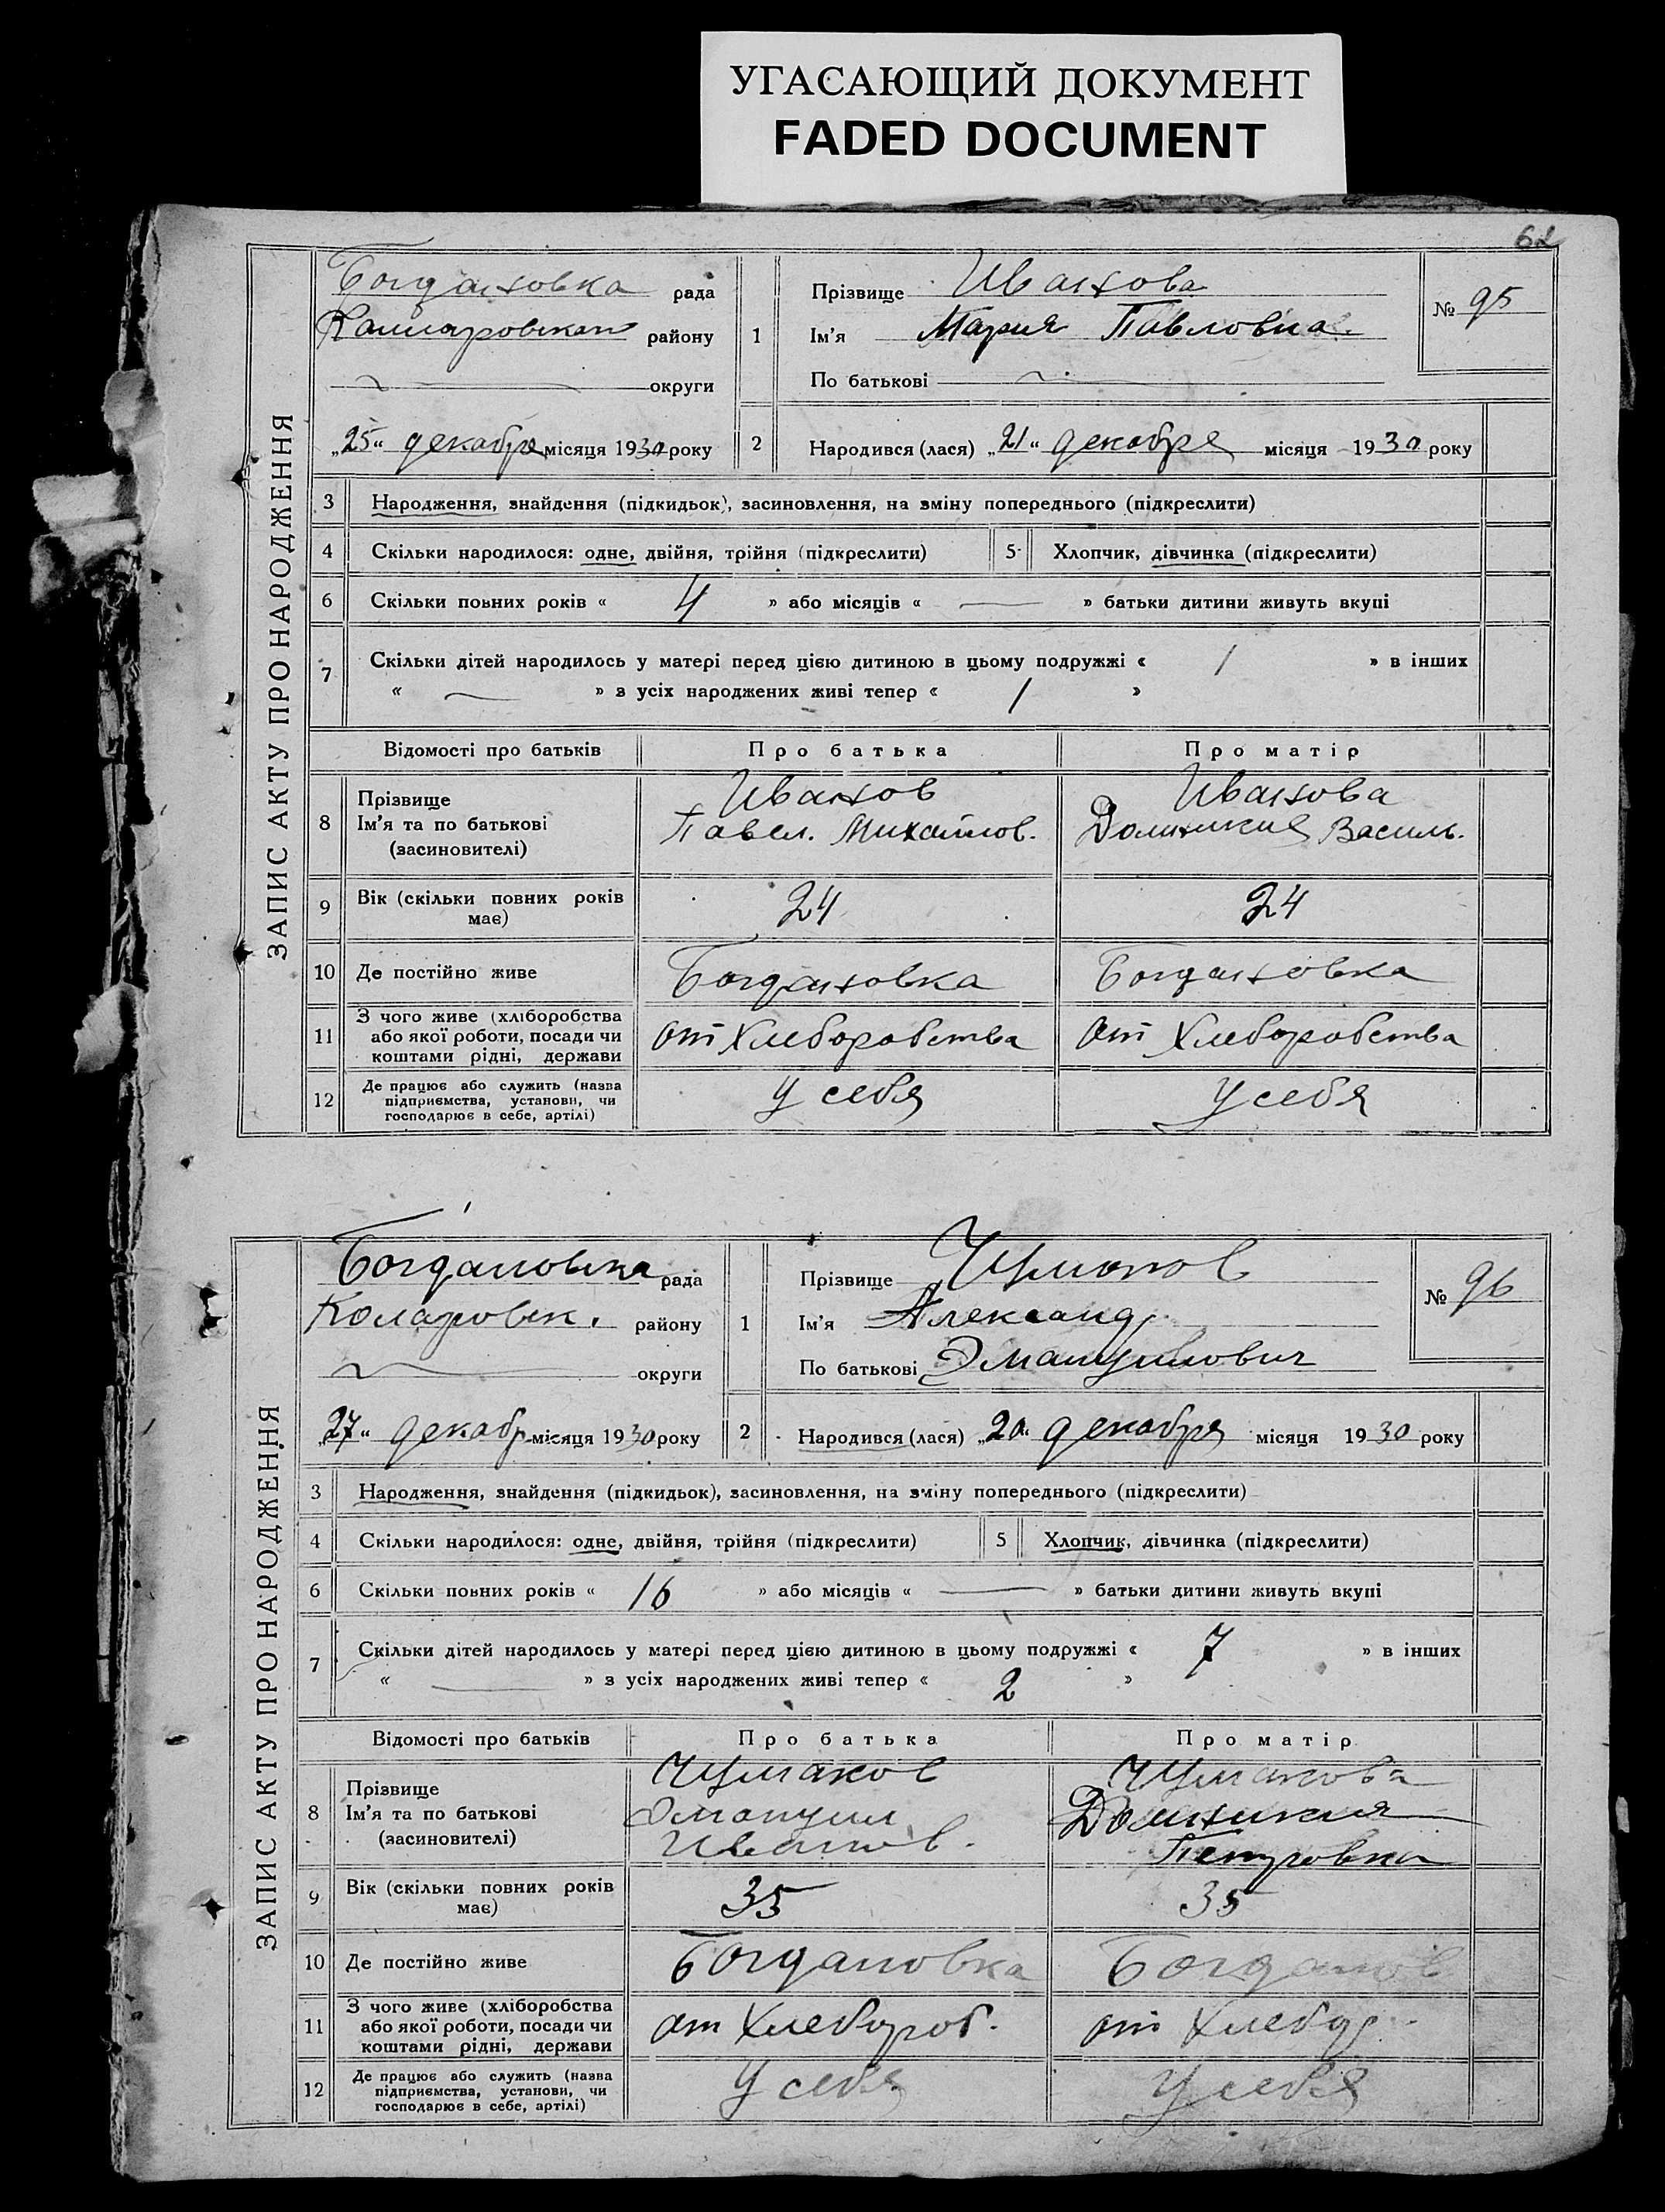 УГАСАЮЩИЙ ДОКУМЕНТ
FADED DOCUMENT
62
ЗАПИС АКТУ ПРО НАРОДЖЕННЯ
Богдановка рада
району
округи
1
Прізвище Иванова
Ім'я Мария Павловна
По батькові
№ 95
„25“ декабря місяця 1930 року
2 Народився (лася) „21“ декабря місяця 1930 року
3 Народження, знайдення (підкидьок), засиновлення, на зміну попереднього (підкреслити)
4 Скільки народилося: одне, двійня, трійня (підкреслити) 5 Хлопчик, дівчинка (підкреслити)
6 Скільки повних років « 4 » або місяців « — » батьки дитини живуть вкупі
7 Скільки дітей народилось у матері перед цією дитиною в цьому подружжі « 1 » в інших
« — » з усіх народжених живі тепер « 1 »
Відомості про батьків Про батька Про матір
8 Прізвище
Ім'я та по батькові
(засиновителі)
Иванов
Павел. Михайлов.
Иванова
Домникия Василь.
9 Вік (скільки повних років
має)
24 24
10 Де постійно живе Богдановка Богдановка
11 З чого живе (хліборобства
або якої роботи, посади чи
коштами рідні, держави
от Хлеборобства от Хлеборобства
12 Де працює або служить (назва
підприємства, установи, чи
господарює в себе, артілі)
У себя У себя
ЗАПИС АКТУ ПРО НАРОДЖЕННЯ
Богдановка рада
Коларовск. району
округи
1
Прізвище Чумаков
Ім'я Александр
По батькові Эмануилович
№ 96
„27“ декабр місяця 1930 року
2 Народився (лася) „20“ декабря місяця 1930 року
3 Народження, знайдення (підкидьок), засиновлення, на зміну попереднього (підкреслити)
4 Скільки народилося: одне, двійня, трійня (підкреслити) 5 Хлопчик, дівчинка (підкреслити)
6 Скільки повних років « 16 » або місяців « — » батьки дитини живуть вкупі
7 Скільки дітей народилось у матері перед цією дитиною в цьому подружжі « 7 » в інших
« — » з усіх народжених живі тепер « 2 »
Відомості про батьків Про батька Про матір
8 Прізвище
Ім'я та по батькові
(засиновителі)
Чумаков
Эмануил
Иванов.
Чумакова
Домникия
Петровна
9 Вік (скільки повних років
має)
35 35
10 Де постійно живе Богдановка Богданов
11 З чого живе (хліборобства
або якої роботи, посади чи
коштами рідні, держави
от Хлебороб. от Хлебор.
12 Де працює або служить (назва
підприємства, установи, чи
господарює в себе, артілі)
У себя У себя